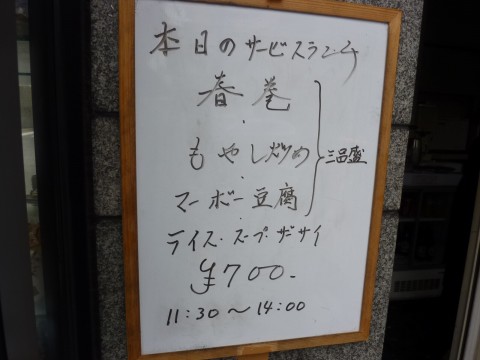 本日のサービスランチ
春巻
・
もやし炒め
・
マーボー豆腐
三品盛
ライス・スープ・ザーサイ
¥700-
11:30〜14:00